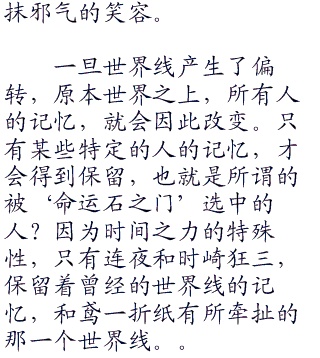 抹邪气的笑容。
一旦世界线产生了偏
转，原本世界之上，所有人
的记忆，就会因此改变。只
有某些特定的人的记忆，才
会得到保留，也就是所谓的
被‘命运石之门’选中的
人？因为时间之力的特殊
性，只有连夜和时崎狂三，
保留着曾经的世界线的记
忆，和鸢一折纸有所牵扯的
那一个世界线。。